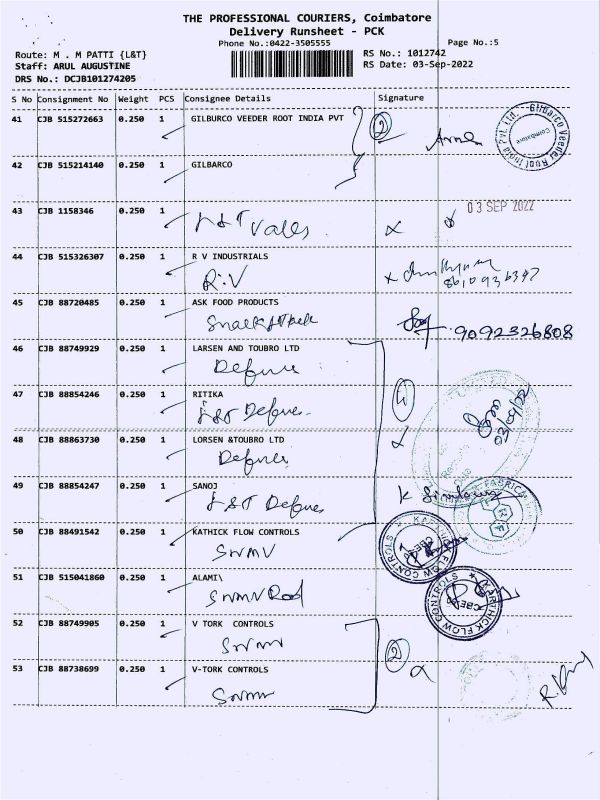 THE PROFESSIONAL COURIERS, Coimbatore
Delivery Runsheet - PCK
Phone No.:0422-3505555
Page No.:5
Route: M . M PATTI {L&T}
RS No.: 1012742
Staff: ARUL AUGUSTINE
RS Date: 03-Sep-2022
DRS No.: DCJB101274205
S No Consignment No Weight PCS Consignee Details Signature
41 CJB 515272663 0.250 1 GILBURCO VEEDER ROOT INDIA PVT
2
Gilbarco Veeder Root India Pvt. Ltd. Coimbatore
42 CJB 515214140 0.250 1 GILBARCO
03 SEP 2022
43 CJB 1158346 0.250 1
L&T Valves
44 CJB 515326307 0.250 1 R V INDUSTRIALS
R.V
8610936347
45 CJB 88720485 0.250 1 ASK FOOD PRODUCTS
9092326808
46 CJB 88749929 0.250 1 LARSEN AND TOUBRO LTD
Defence
47 CJB 88854246 0.250 1 RITIKA
L&T Defence
4
03/09/22
48 CJB 88863730 0.250 1 LORSEN &TOUBRO LTD
Defence
49 CJB 88854247 0.250 1 SANOJ
L&T Defence
50 CJB 88491542 0.250 1 KATHICK FLOW CONTROLS
SNMV
KARTHICK FLOW CONTROLS
51 CJB 515041860 0.250 1 ALAMI\
SNMV Road
KARTHICK FLOW CONTROLS
52 CJB 88749905 0.250 1 V TORK CONTROLS
SNMV
2
53 CJB 88738699 0.250 1 V-TORK CONTROLS
SNMV